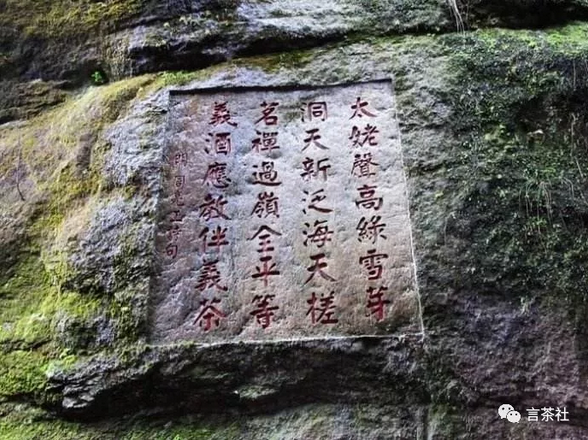 太姥聲高綠雪芽
洞天新泛海天槎
茗禪過嶺全平等
義酒應教伴義茶
周亮工詩句
言茶社